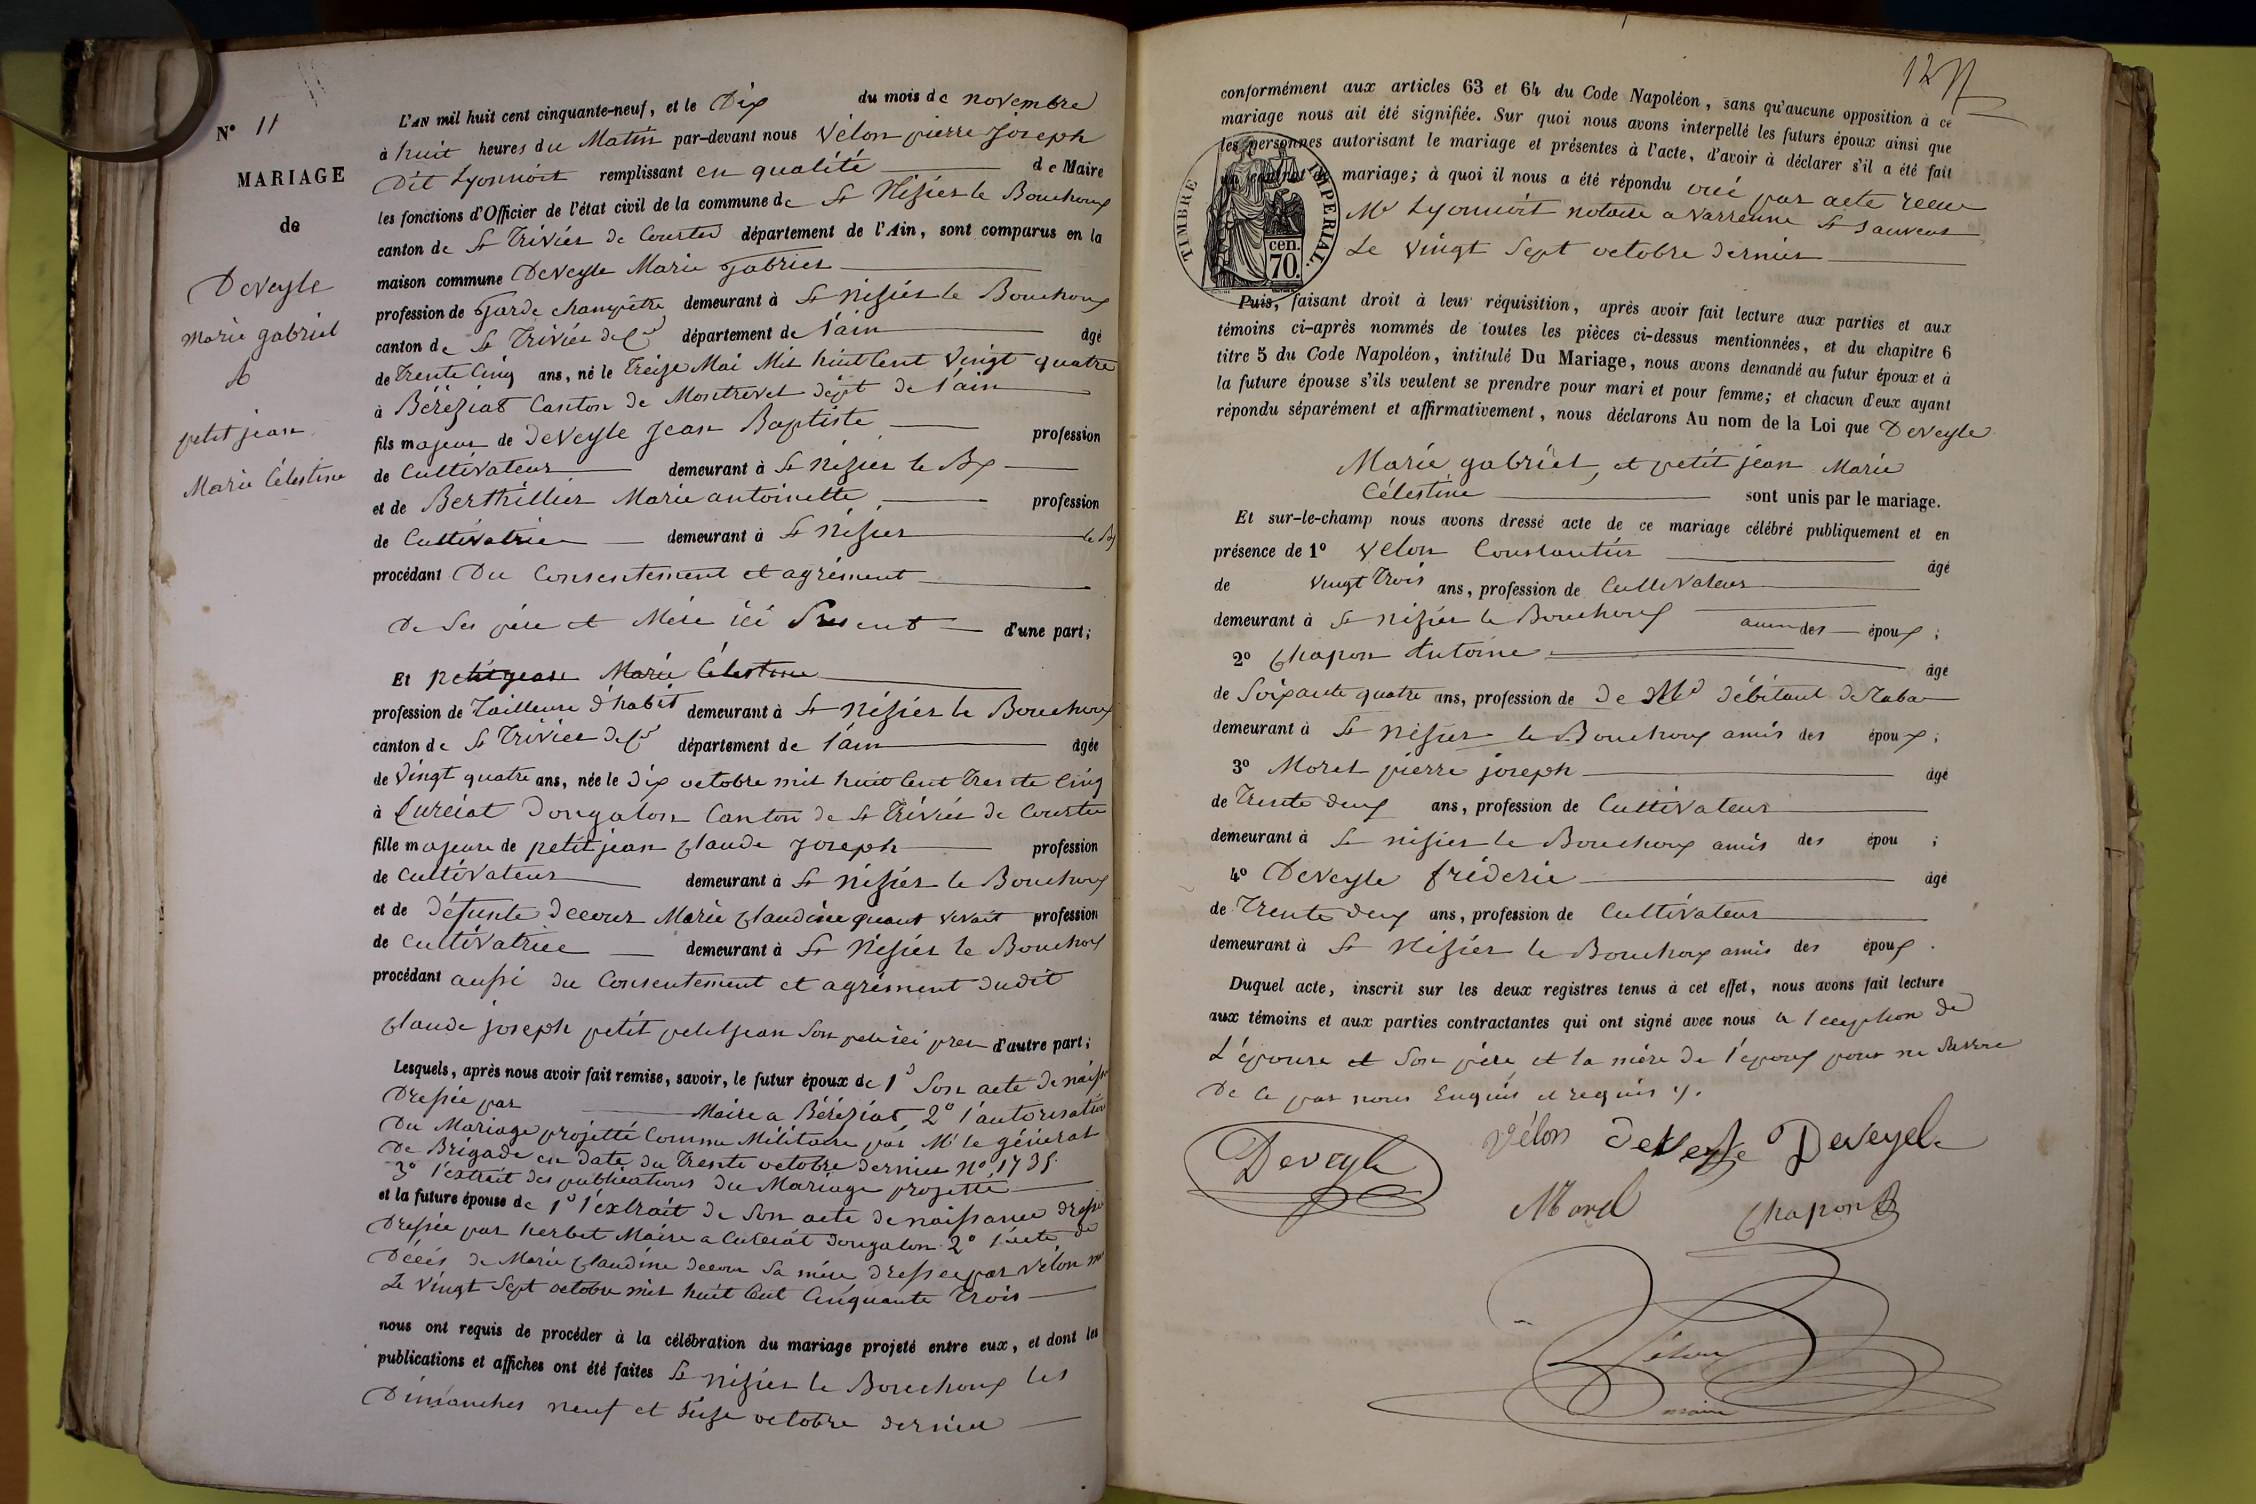 N° 11
MARIAGE
de
Deveyle
marie gabriel
&
petit jean
Marie Célestine
L'AN mil huit cent cinquante-neuf, et le Dix du mois de novembre
à huit heures du Matin par-devant nous Vélon pierre Joseph
Dit Lyonnoit remplissant en qualité de Maire
les fonctions d'Officier de l'état civil de la commune de St Nizier le Bouchoux
canton de St Trivier de Courtes département de l'Ain, sont comparus en la
maison commune Deveyle Marie Gabriel
profession de Garde champêtre demeurant à St Nizier le Bouchoux
canton de St Trivier de Cts département de l'ain âgé
de Trente Cinq ans, né le Treize Mai Mil huit Cent Vingt quatre
à Béréziat Canton de Montrevel dépt de l'ain
fils majeur de Deveyle Jean Baptiste profession
de Cultivateur demeurant à St Nizier le Bx
et de Berthillier Marie antoinette profession
de Cultivatrice demeurant à St Nizier le Bx
procédant Du Consentement et agrément
De Ses père et Mère ici Présent d'une part;
Et petitjean Marie Célestine
profession de Tailleuse d'habit demeurant à St Nizier le Bouchoux
canton de St Trivier de Cts département de l'ain âgée
de Vingt quatre ans, née le Dix octobre mil huit Cent Trente Cinq
à Curciat Dongalon Canton de St Trivier de Courtes
fille majeure de petit jean Claude Joseph profession
de Cultivateur demeurant à St Nizier le Bouchoux
et de défunte Decour Marie Claudine quant vivait profession
de Cultivatrice demeurant à St Nizier le Bouchoux
procédant aussi du Consentement et agrément dudit
Claude joseph petit petitjean Son père ici pres d'autre part;
Lesquels, après nous avoir fait remise, savoir, le futur époux de 1° Son acte de naiss
Dressée par Maire a Béréziat 2° l'autorisation
Du Mariage projetté Comme Militaire par Mr le général
De Brigade en Date du Trente octobre dernier N° 1735
3° l'extrait des publications du Mariage projetté
et la future épouse de 1° l'éxtrait de Son acte de naissance dressé
Dressée par herbet Maire a Curciat Dongalon 2° l'acte de
Décès de Marie Claudine Decour Sa mère dressée par Vélon
Le Vingt Sept octobre mil huit Cent Cinquante Trois
nous ont requis de procéder à la célébration du mariage projeté entre eux, et dont les
publications et affiches ont été faites St Nizier le Bouchoux les
Dimanches neuf et Seize octobre dernier
12
conformément aux articles 63 et 64 du Code Napoléon, sans qu'aucune opposition à ce
mariage nous ait été signifiée. Sur quoi nous avons interpellé les futurs époux ainsi que
les personnes autorisant le mariage et présentes à l'acte, d'avoir à déclarer s'il a été fait
un contrat de mariage; à quoi il nous a été répondu oui par acte recu
Me Lyonnoit notaire a Varenne St Sauveur
Le Vingt Sept octobre dernier
TIMBRE IMPERIAL
70 cen.
Puis, faisant droit à leur réquisition, après avoir fait lecture aux parties et aux
témoins ci-après nommés de toutes les pièces ci-dessus mentionnées, et du chapitre 6
titre 5 du Code Napoléon, intitulé Du Mariage, nous avons demandé au futur époux et à
la future épouse s'ils veulent se prendre pour mari et pour femme; et chacun d'eux ayant
répondu séparément et affirmativement, nous déclarons Au nom de la Loi que Deveyle
Marie gabriel, et petit jean Marie
Célestine sont unis par le mariage.
Et sur-le-champ nous avons dressé acte de ce mariage célébré publiquement et en
présence de 1° Velon Constantin âgé
de vingt Trois ans, profession de Cultivateur
demeurant à St Nizier le Bouchoux amis des époux;
2° Chapon Antoine âgé
de Soixante quatre ans, profession de de Md débitant de Taba
demeurant à St Nizier le Bouchoux amis des époux;
3° Morel pierre joseph âgé
de Trente deux ans, profession de Cultivateur
demeurant à St nizier le Bouchoux amis des épou;
4° Deveyle fréderic âgé
de Trente deux ans, profession de Cultivateur
demeurant à St Nizier le Bouchoux amis des époux.
Duquel acte, inscrit sur les deux registres tenus à cet effet, nous avons fait lecture
aux témoins et aux parties contractantes qui ont signé avec nous a l'exception de
L'épouse et Son père et la mère de l'époux pour ne Savoir
De ce par nous Enquis et requis
Deveyle Vélon Deveyle Deveyele
Morel Chapon
Vélon
maire